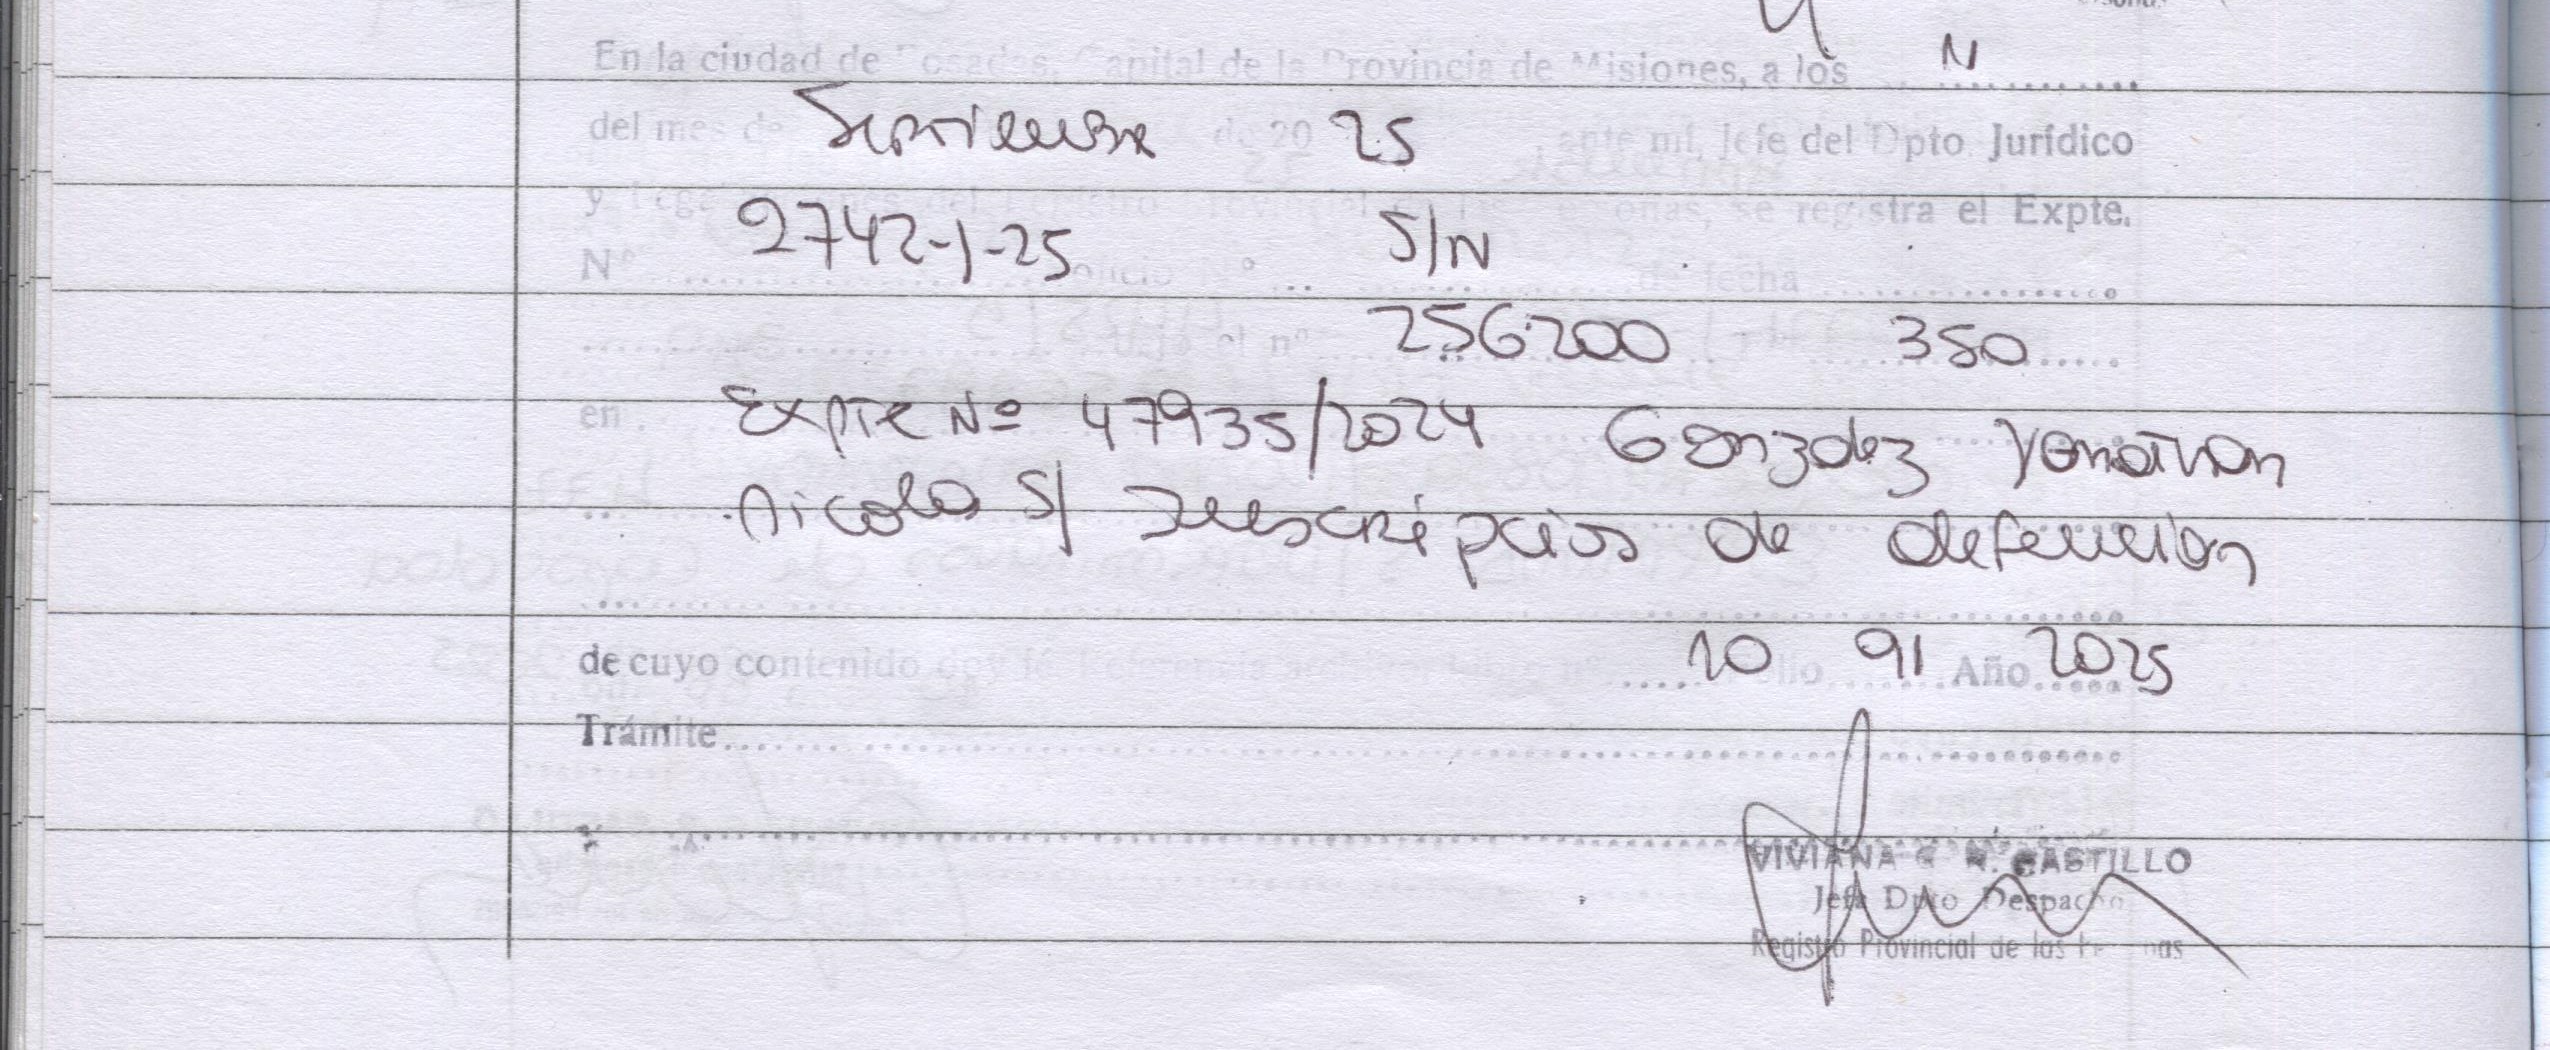 En la ciudad de Posadas, Capital de la Provincia de Misiones, a los 11
del mes de Septiembre de 20 25 ante mí, Jefe del Dpto. Jurídico
y Legalizaciones del Registro Provincial de las Personas, se registra el Expte.
Nº 2742-1-25 oficio Nº S/N de fecha
el nº 256200 350
en Expte Nº 47935/2024 Gonzalez Yonathan
Nicolas S/ Inscripcion de defuncion
de cuyo contenido doy fé. Referencia 10 Folio 91 Año 2025
Trámite
VIVIANA G. R. CASTILLO
Jefa Dpto Despacho
Registro Provincial de las Personas